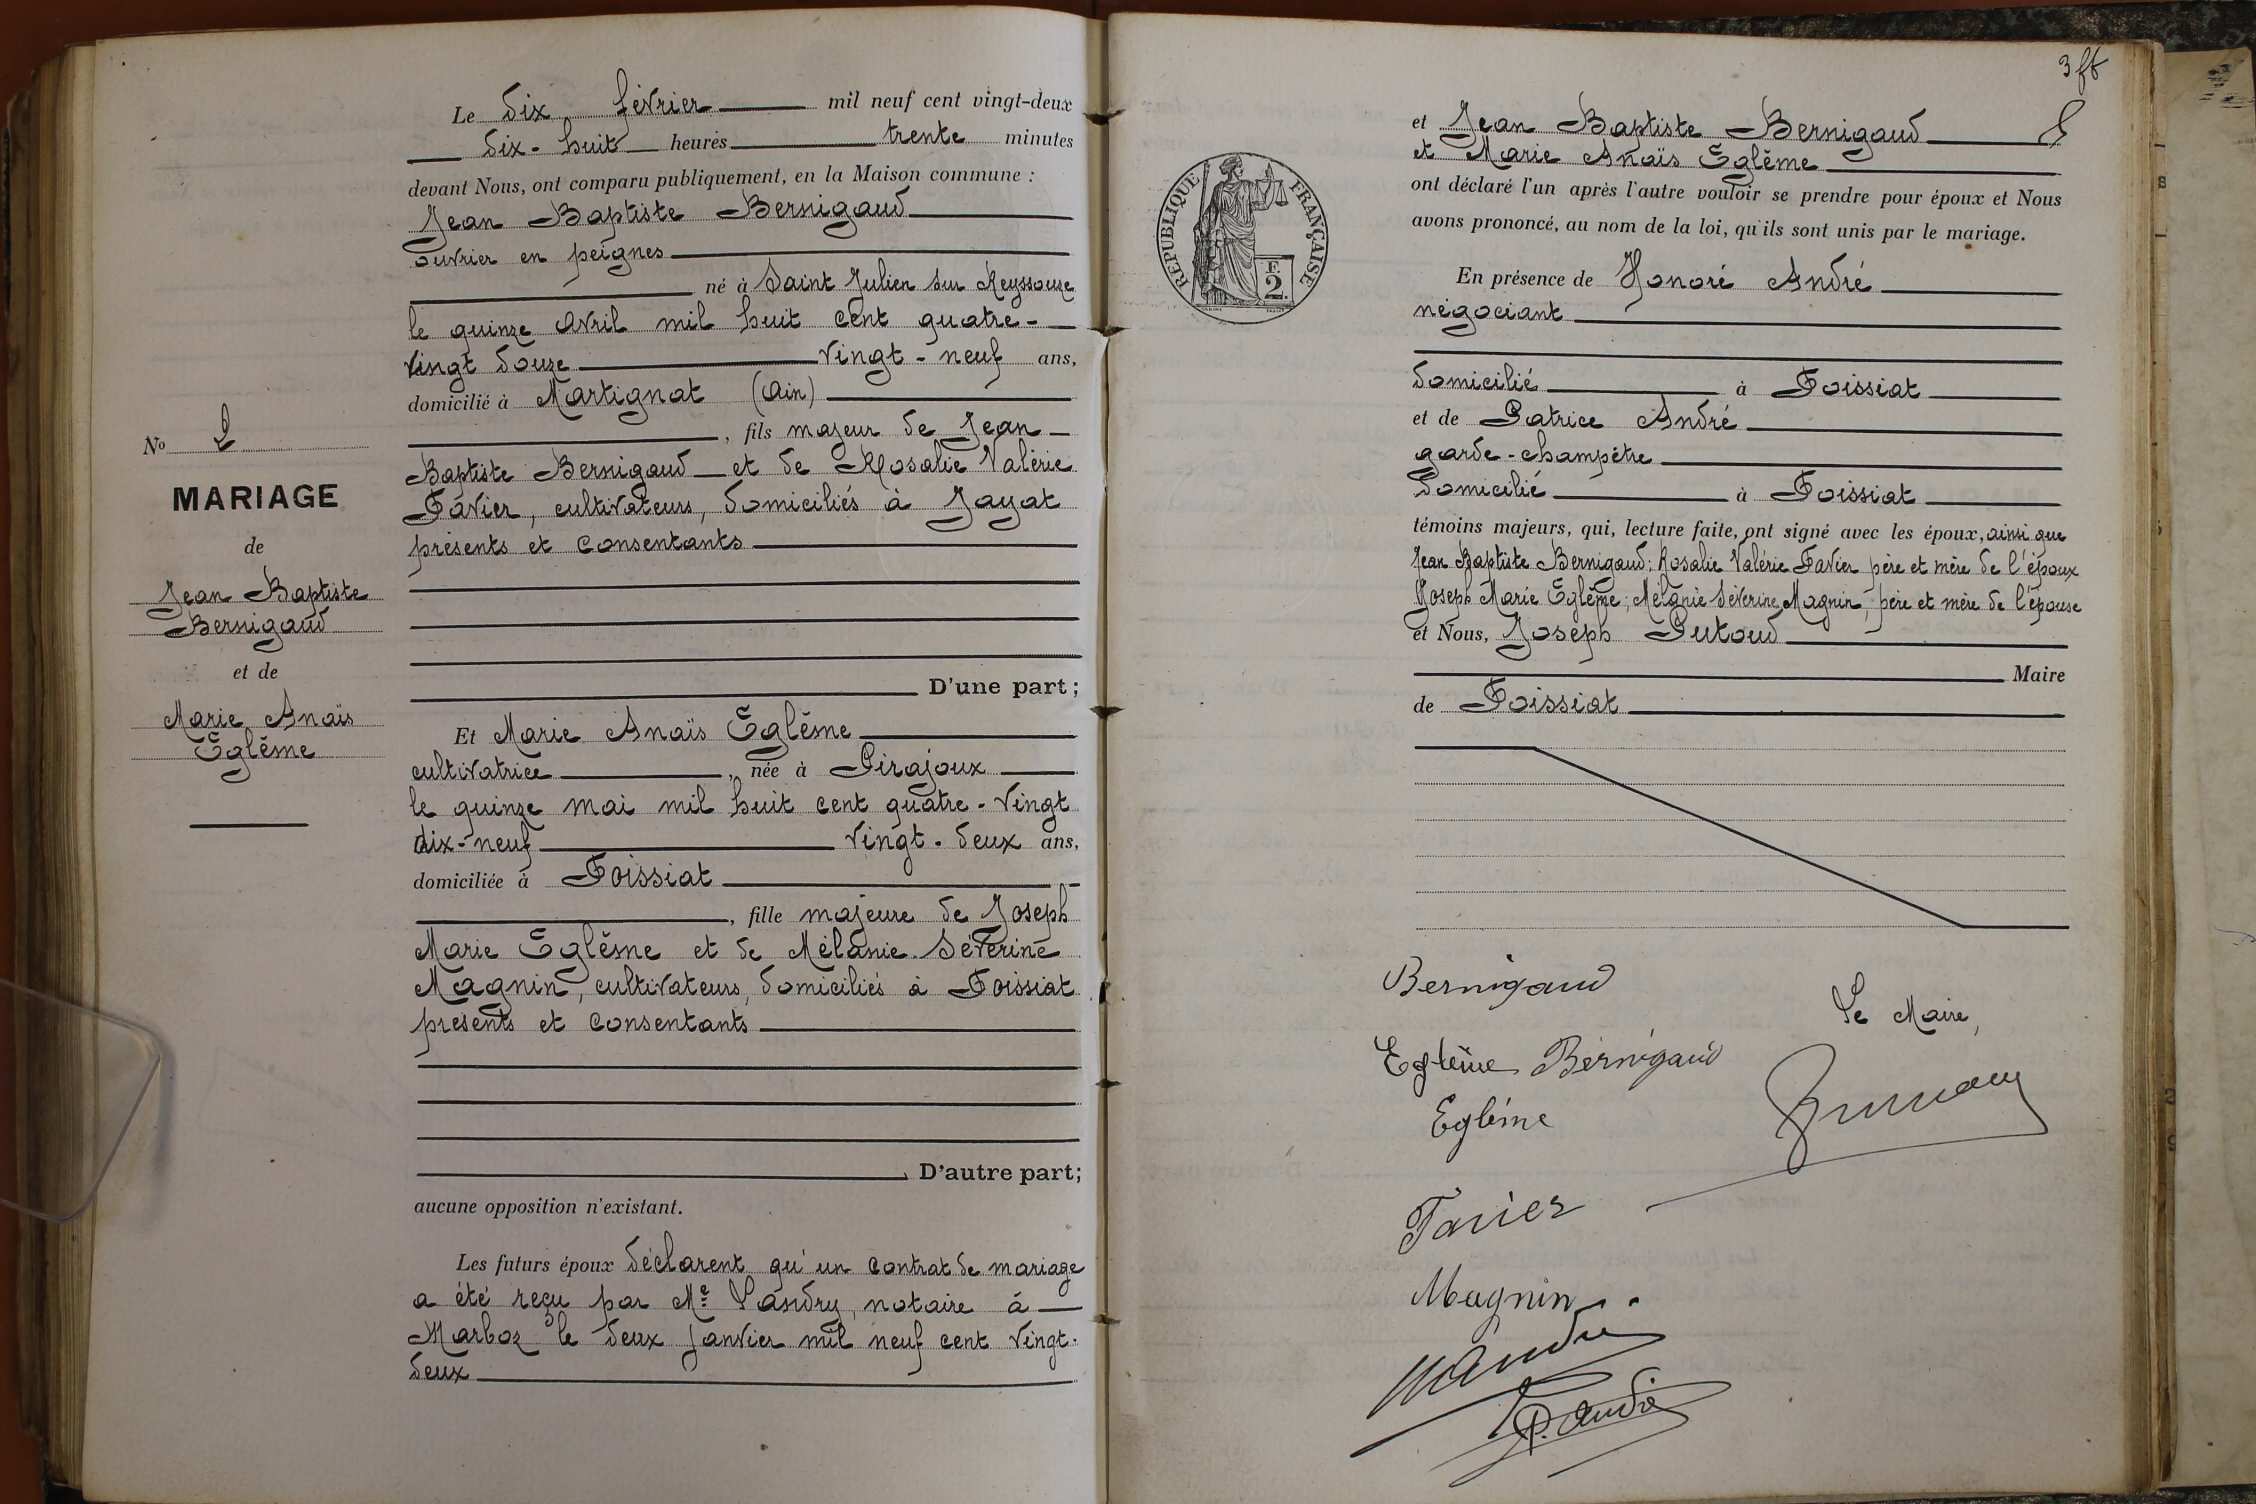 Le dix février mil neuf cent vingt-deux
dix-huit heures trente minutes
devant Nous, ont comparu publiquement, en la Maison commune :
Jean Baptiste Bernigaud
ouvrier en peignes
né à Saint Julien sur Reyssouze
le quinze avril mil huit cent quatre-
vingt douze vingt-neuf ans,
domicilié à Martignat (Ain)
, fils majeur de Jean
Baptiste Bernigaud et de Rosalie Valérie
Favier, cultivateurs, domiciliés à Jayat
présents et consentants
D'une part ;
Et Marie Anaïs Eglême
cultivatrice, née à Pirajoux
le quinze mai mil huit cent quatre-vingt
dix-neuf vingt-deux ans,
domiciliée à Foissiat
, fille majeure de Joseph
Marie Eglême et de Mélanie Séverine
Magnin, cultivateurs, domiciliés à Foissiat
présents et consentants
D'autre part ;
aucune opposition n'existant.
Les futurs époux déclarent qu'un contrat de mariage
a été reçu par Me Landry, notaire à
Marboz le deux janvier mil neuf cent vingt-
deux
No 2
MARIAGE
de
Jean Baptiste
Bernigaud
et de
Marie Anaïs
Eglême
RÉPUBLIQUE FRANÇAISE
F.
2
et Jean Baptiste Bernigaud
et Marie Anaïs Eglême
ont déclaré l'un après l'autre vouloir se prendre pour époux et Nous
avons prononcé, au nom de la loi, qu'ils sont unis par le mariage.
En présence de Honoré André
négociant
domicilié à Foissiat
et de Patrice André
garde-champêtre
domicilié à Foissiat
témoins majeurs, qui, lecture faite, ont signé avec les époux, ainsi que
Jean Baptiste Bernigaud; Rosalie Valérie Favier père et mère de l'époux
Joseph Marie Eglême; Mélanie Séverine Magnin, père et mère de l'épouse
et Nous, Joseph Putoud
Maire
de Foissiat
Bernigaud
Le Maire,
Eglême Bernigaud
Eglême
Favier
Magnin
H André
P. André